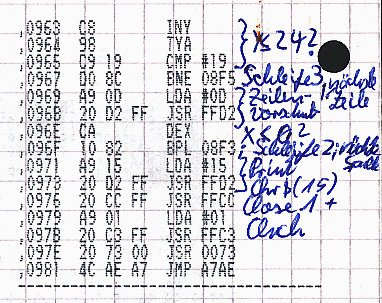 ,0963 C8 INY
,0964 98 TYA } Is 24?
,0965 C9 19 CMP #19
,0967 D0 8C BNE 08F5 Schleife 3, nächste
,0969 A9 0D LDA #0D } Zeilen- Zeile
,096B 20 D2 FF JSR FFD2 vorschub
,096E CA DEX
,096F 10 82 BPL 08F3 Schleife 2,
,0971 A9 15 LDA #15 } Print
,0973 20 D2 FF JSR FFD2 Chr$(15)
,0976 20 CC FF JSR FFCC Close 1 +
,0979 A9 01 LDA #01
,097B 20 C3 FF JSR FFC3
,097E 20 73 00 JSR 0073
,0981 4C AE A7 JMP A7AE